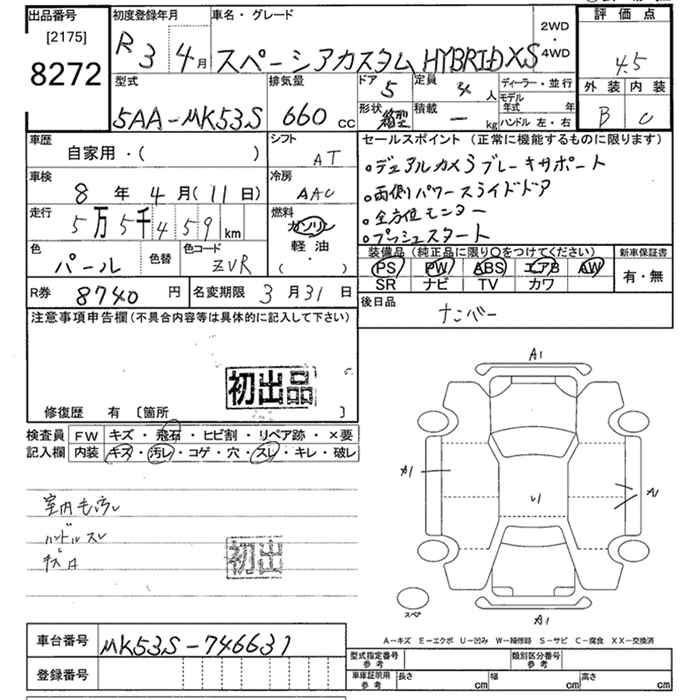 出品番号 初度登録年月 車名・グレード 2WD・4WD 評価点
[2175]
8272
R3 4月 スペーシアカスタム HYBRID XS 4.5
型式 排気量 ドア 5 定員 4人 ディーラー・並行 外装 内装
5AA-MK53S 660cc 形状 箱型 積載 ー kg モデル年式 年 ハンドル 左・右 B C
車歴 シフト セールスポイント(正常に機能するものに限ります)
自家用・( ) AT
・デュアルカメラブレーキサポート
車検 冷房
8年 4月(11日) AAC ・両側パワースライドドア
走行 燃料 ・全方位モニター
5万5千459km ガソリン
軽油・( ) ・プッシュスタート
色 色替 色コード 装備品(純正品に限り○をつけてください) 新車保証書
パール ZVR PS PW ABS エアB AW 有・無
SR ナビ TV カワ
R券 8740円 名変期限 3月31日 後日品
ナンバー
注意事項申告欄(不具合内容等は具体的に記入して下さい)
初出品
修復歴 有 〔箇所 〕
検査員 FW キズ・飛石・ヒビ割・リペア跡・×要
記入欄 内装 キズ・汚レ・コゲ・穴・スレ・キレ・破レ
A1
A1
室内
ハンドルスレ
初出
スペア
A1
A-キズ E-エクボ U-凹み W-補修跡 S-サビ C-腐食 XX-交換済
車台番号 MK53S-746631
型式指定番号 参考 類別区分番号 参考
登録番号 車庫証明用 参考 長さ cm 幅 cm 高さ cm